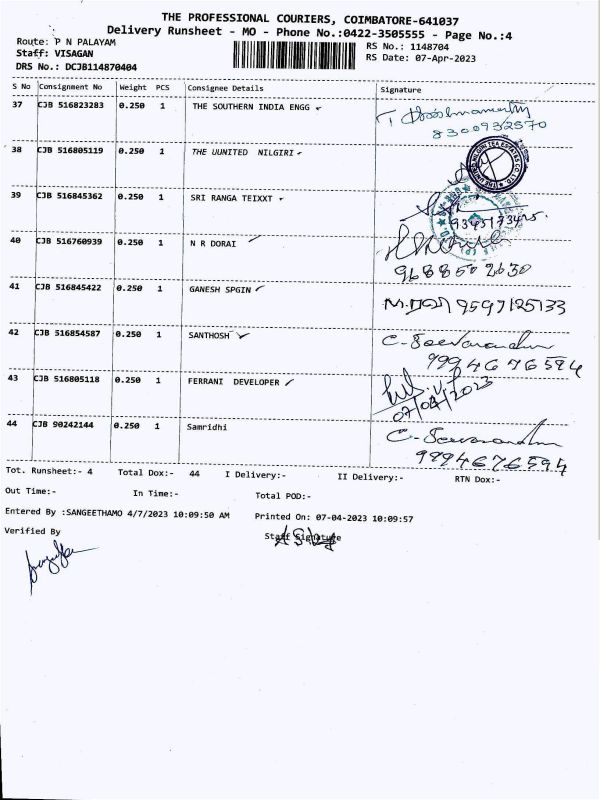 THE PROFESSIONAL COURIERS, COIMBATORE-641037
Delivery Runsheet - MO - Phone No.:0422-3505555 - Page No.:4
Route: P N PALAYAM
RS No.: 1148704
Staff: VISAGAN
RS Date: 07-Apr-2023
DRS No.: DCJB114870404
S No Consignment No Weight PCS Consignee Details Signature
37 CJB 516823283 0.250 1 THE SOUTHERN INDIA ENGG
8300932570
38 CJB 516805119 0.250 1 THE UUNITED NILGIRI
THE UNITED NILGIRI TEA ESTATES CO LTD
39 CJB 516845362 0.250 1 SRI RANGA TEIXXT
40 CJB 516760939 0.250 1 N R DORAI
9688502630
41 CJB 516845422 0.250 1 GANESH SPGIN
9597125133
42 CJB 516854587 0.250 1 SANTHOSH
9994676594
43 CJB 516805118 0.250 1 FERRANI DEVELOPER
07/04/2023
44 CJB 90242144 0.250 1 Samridhi
9994676594
Tot. Runsheet:- 4 Total Dox:- 44 I Delivery:- II Delivery:- RTN Dox:-
Out Time:- In Time:- Total POD:-
Entered By :SANGEETHAMO 4/7/2023 10:09:50 AM Printed On: 07-04-2023 10:09:57
Verified By Staff Signature